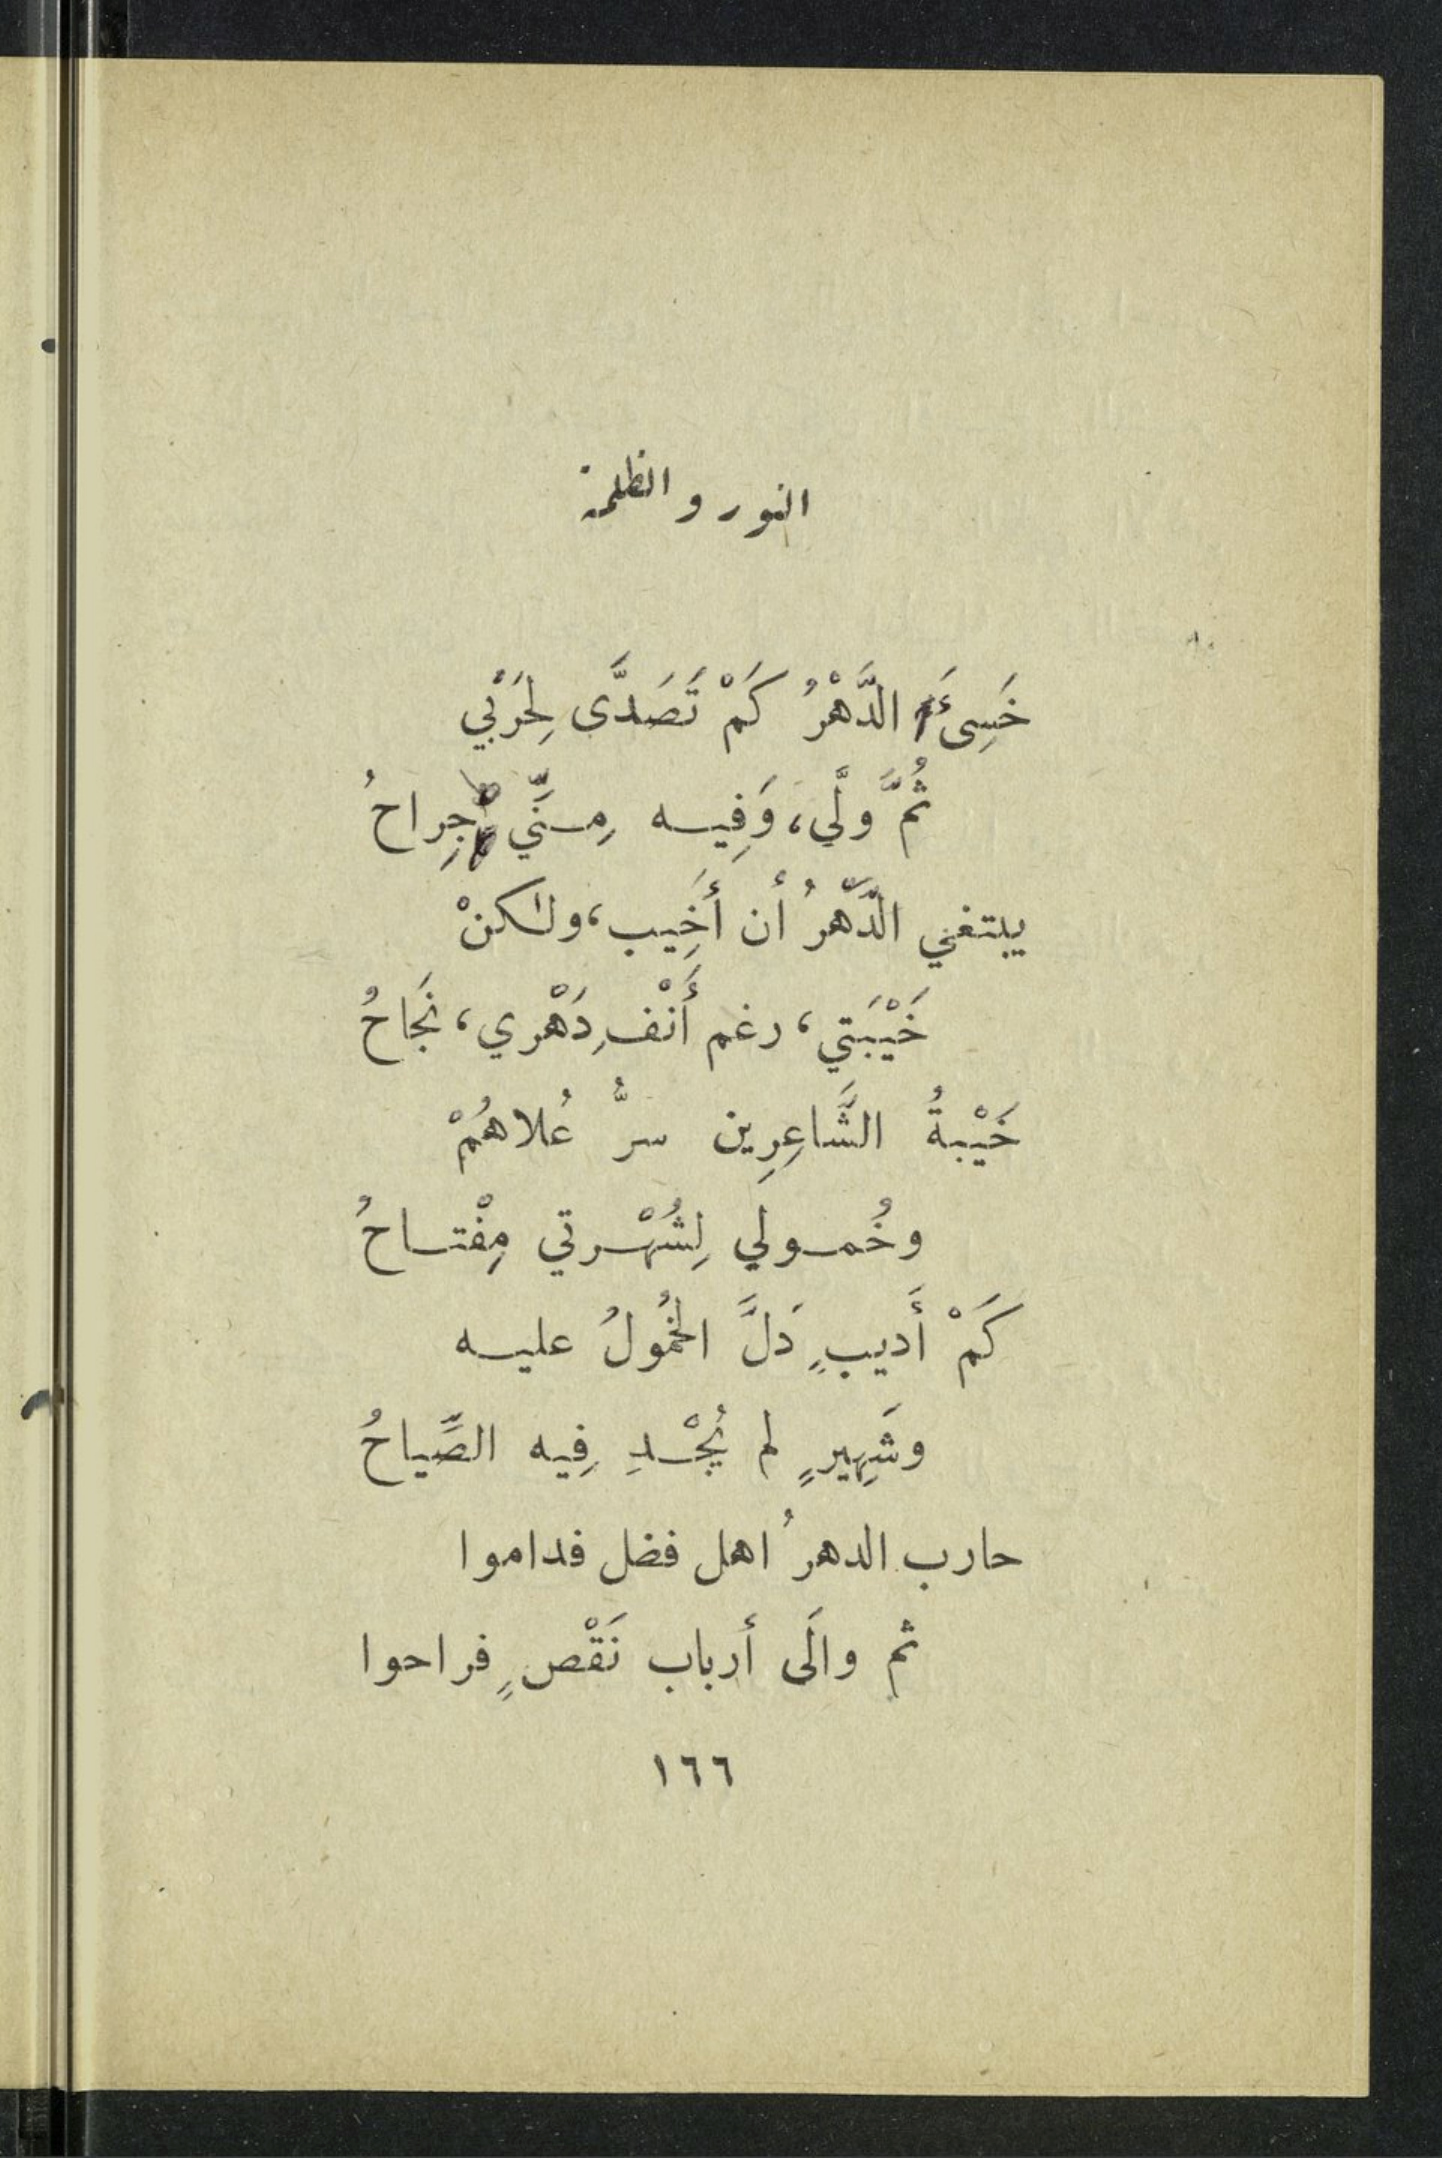 النور والظلمة
خَسِىءَ الدَّهْرُ كَمْ تَصَدَّى لِحَرْبي
ثُمَّ ولَّي، وَفِيه مِنِّي جِراحُ
يبتغي الدَّهرُ أن أَخِيب، ولكنْ
خَيْبَتي، رغم أَنْفِ دَهْري، نَجاحُ
خَيْبةُ الشَّاعِرِين سرُّ عُلاهُمْ
وخُمولي لِشُهْرتي مِفْتاحُ
كَمْ أَديبٍ دَلَّ الخُمُولُ عليه
وشَهِيرٍ لم يُجْدِ فِيه الصِّياحُ
حارب الدهرُ اهل فضل فداموا
ثم والَى أرباب نَقْصٍ فراحوا
١٦٦